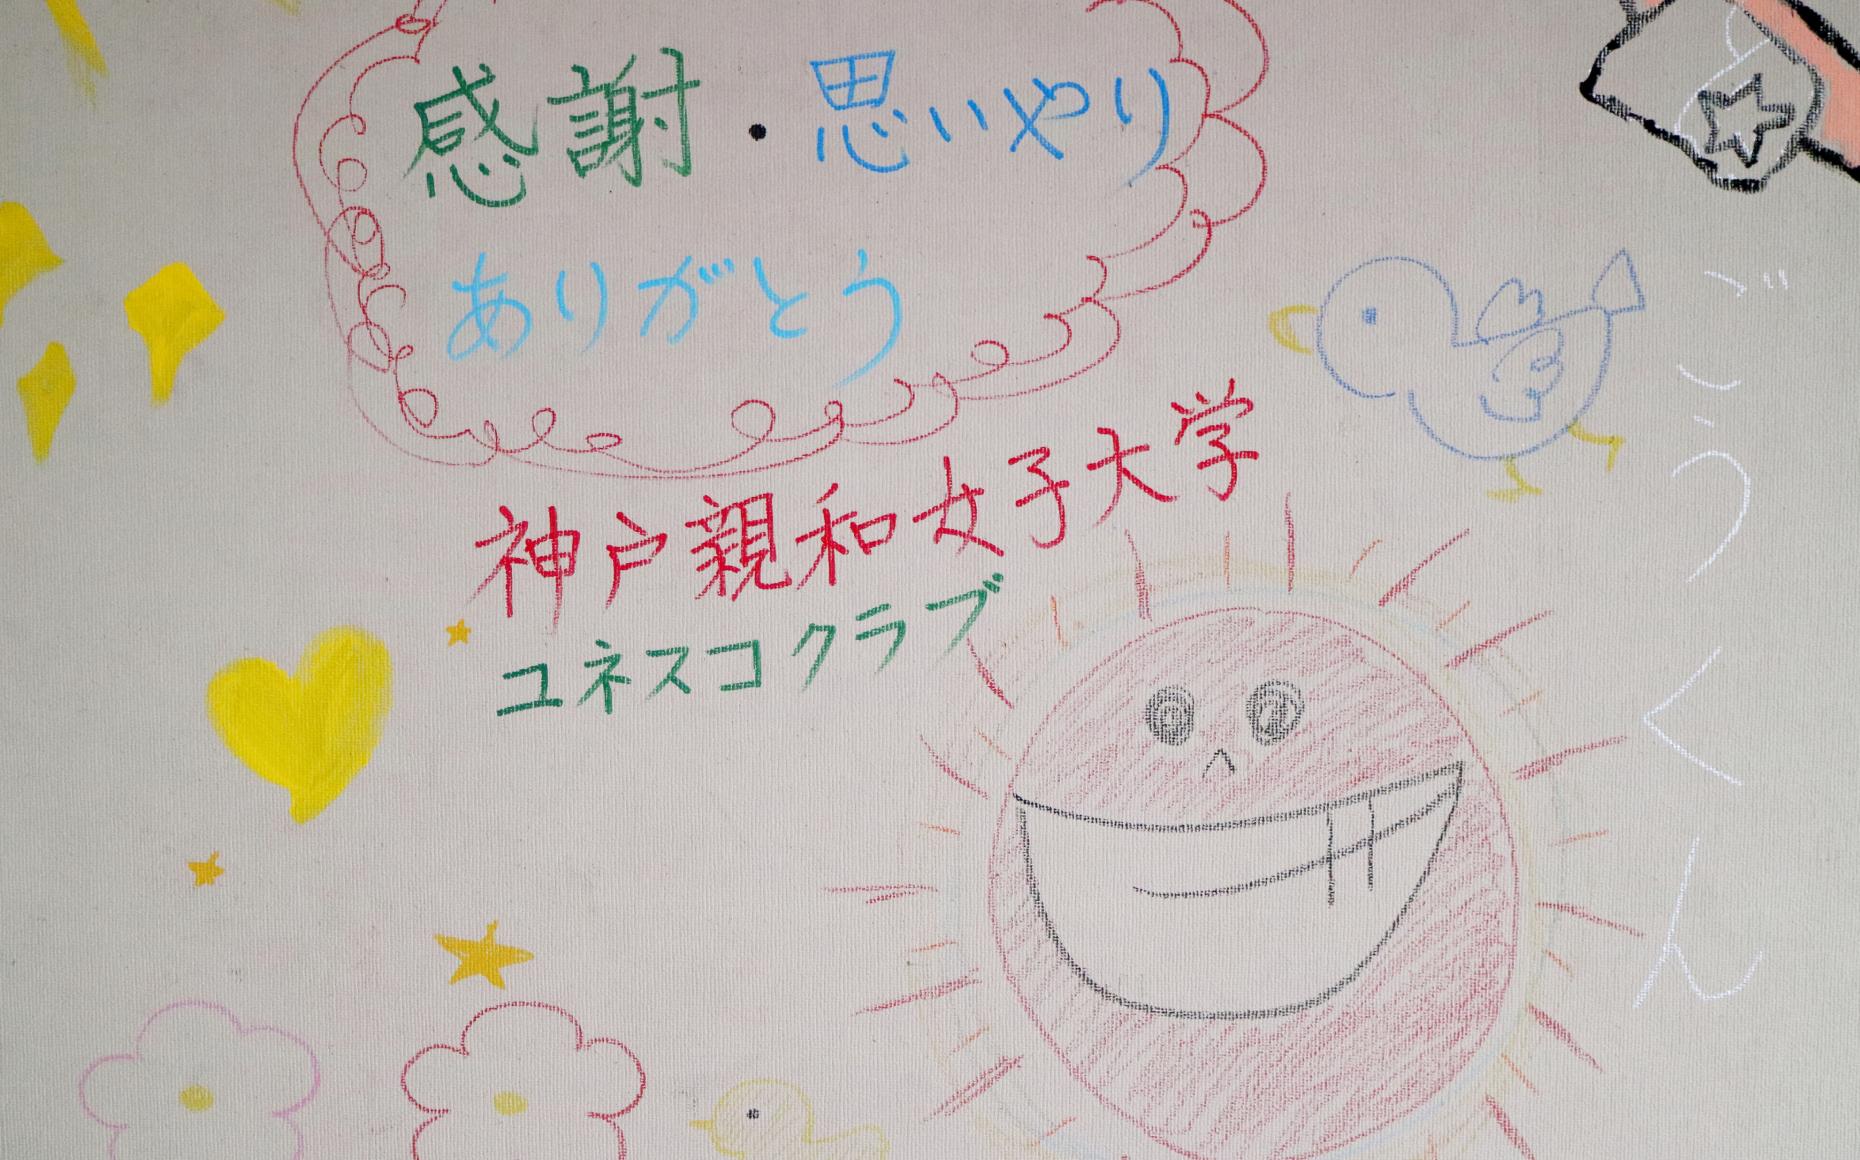 感謝・思いやり
ありがとう
神戸親和女子大学
ユネスコクラブ